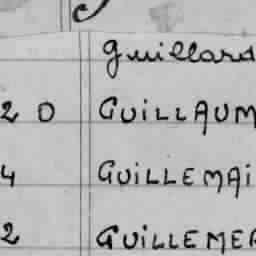 Guillard
20 GUILLAUM
4 GUILLEMAI
2 GUILLEMER